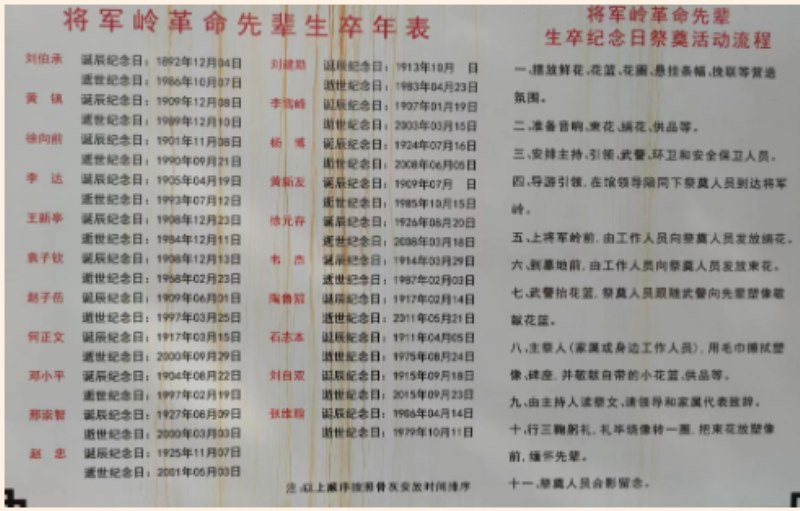 将军岭革命先辈生卒年表
刘伯承 诞辰纪念日：1892年12月04日
逝世纪念日：1986年10月07日
黄 镇 诞辰纪念日：1909年12月08日
逝世纪念日：1989年12月10日
徐向前 诞辰纪念日：1901年11月08日
逝世纪念日：1990年09月21日
李 达 诞辰纪念日：1905年04月19日
逝世纪念日：1993年07月12日
王新亭 诞辰纪念日：1908年12月23日
逝世纪念日：1984年12月11日
袁子钦 诞辰纪念日：1908年12月13日
逝世纪念日：1968年02月23日
赵子岳 诞辰纪念日：1909年06月01日
逝世纪念日：1997年03月25日
何正文 诞辰纪念日：1917年03月15日
逝世纪念日：2000年09月29日
邓小平 诞辰纪念日：1904年08月22日
逝世纪念日：1997年02月19日
邢崇智 诞辰纪念日：1927年08月09日
逝世纪念日：2000年03月03日
赵 忠 诞辰纪念日：1925年11月07日
逝世纪念日：2001年05月03日
刘建勋 诞辰纪念日：1913年10月 日
逝世纪念日：1983年04月23日
李雪峰 诞辰纪念日：1907年01月19日
逝世纪念日：2003年03月15日
杨 诞辰纪念日：1924年07月16日
逝世纪念日：2008年06月05日
黄新友 诞辰纪念日：1909年07月 日
逝世纪念日：1985年10月15日
徐元存 诞辰纪念日：1926年08月20日
逝世纪念日：2008年03月18日
韦 杰 诞辰纪念日：1914年03月29日
逝世纪念日：1987年02月03日
陶鲁笳 诞辰纪念日：1917年02月14日
逝世纪念日：2011年05月21日
石志本 诞辰纪念日：1911年04月05日
逝世纪念日：1975年08月24日
刘自双 诞辰纪念日：1915年09月18日
逝世纪念日：2015年09月23日
张维翰 诞辰纪念日：1906年04月14日
逝世纪念日：1979年10月11日
注：以上顺序按照骨灰安放时间排序
将军岭革命先辈
生卒纪念日祭奠活动流程
一、摆放鲜花、花篮、花圈、悬挂条幅、挽联等营造
氛围。
二、准备音响、束花、绢花、供品等。
三、安排主持、引领、武警、环卫和安全保卫人员。
四、导游引领，在馆领导陪同下祭奠人员到达将军
岭。
五、上将军岭前，由工作人员向祭奠人员发放绢花。
六、到墓地前，由工作人员向祭奠人员发放束花。
七、武警抬花篮，祭奠人员跟随武警向先辈塑像敬
献花篮。
八、主祭人（家属或身边工作人员），用毛巾擦拭塑
像、碑座，并敬献自带的小花篮、供品等。
九、由主持人读祭文，请领导和家属代表致辞。
十、行三鞠躬礼，礼毕绕像转一圈，把束花放塑像
前，缅怀先辈。
十一、祭奠人员合影留念。